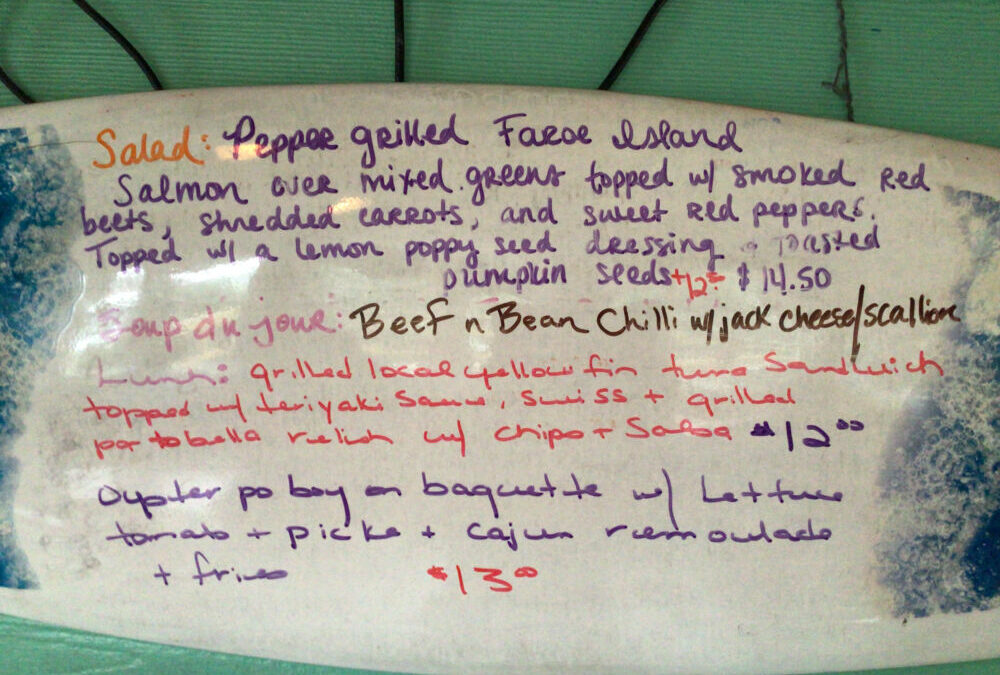 Salad: Pepper grilled Faroe Island
Salmon over mixed greens topped w/ smoked red
beets, shredded carrots, and sweet red peppers.
Topped w/ a lemon poppy seed dressing toasted
pumpkin seeds $14.50
Soup du jour: Beef n Bean Chilli w/jack cheese/scallion
Lunch: grilled local yellow fin tuna Sandwich
topped w/ teriyaki Sauce, swiss + grilled
portobella relish w/ chips + Salsa $12⁰⁰
Oyster po boy on baguette w/ Lettuce
tomato + pickle + cajun remoulade
+ fries $13⁰⁰